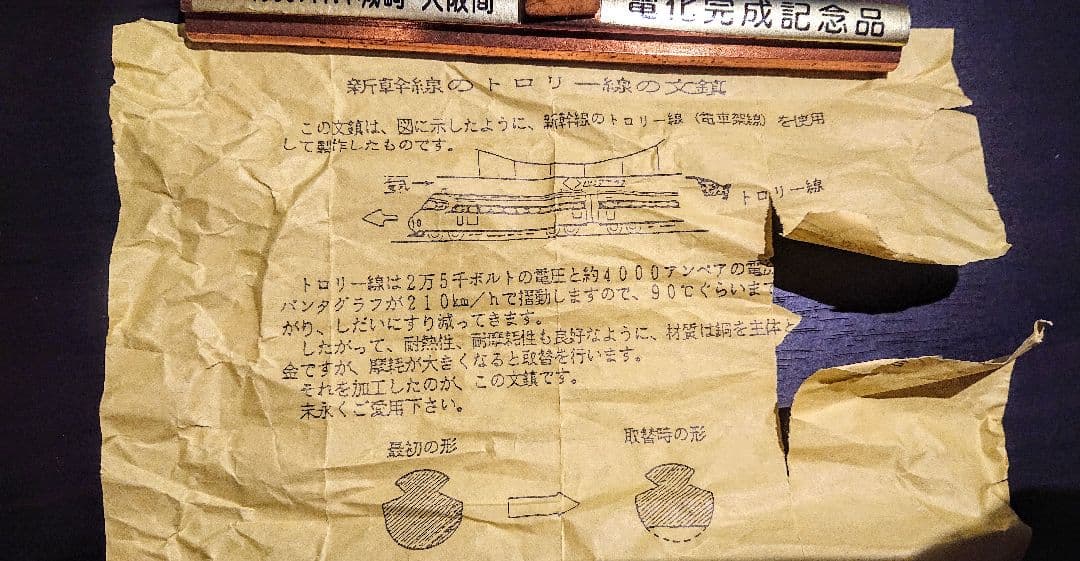 城崎 大阪間
電化完成記念品
新幹線のトロリー線の文鎮
この文鎮は、図に示したように、新幹線のトロリー線（電車架線）を使用
して製作したものです。
電気
トロリー線
トロリー線は2万5千ボルトの電圧と約4000アンペアの電流
パンタグラフが210km/hで摺動しますので、90℃ぐらいまで
がり、しだいにすり減ってきます。
したがって、耐熱性、耐摩耗性も良好なように、材質は銅を主体と
金ですが、摩耗が大きくなると取替を行います。
それを加工したのが、この文鎮です。
末永くご愛用下さい。
最初の形
取替時の形